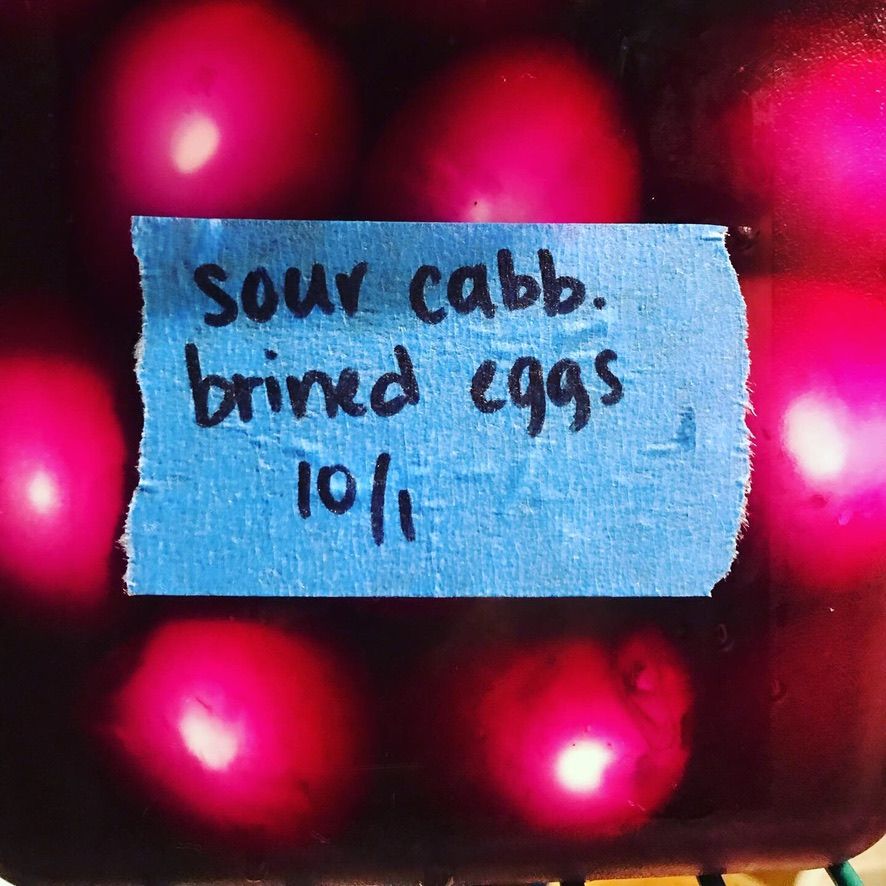 sour cabb.
brined eggs
10/1